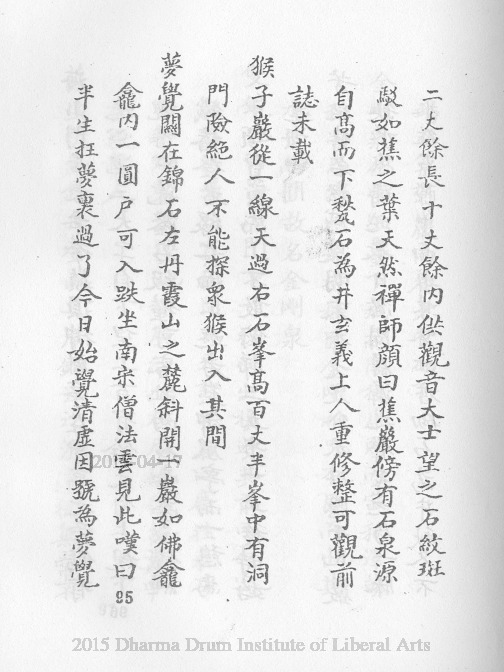 二丈餘長十丈餘內供觀音大士望之石紋斑
駁如蕉之葉天然禪師顏曰蕉巖傍有石泉源
自高而下甃石為井玄義上人重修整可觀前
誌未載
猴子巖從一線天過右石峯高百丈半峯中有洞
門險絕人不能探衆猴出入其間
夢覺關在錦石左丹霞山之麓斜開一巖如佛龕
龕內一圓戶可入趺坐南宋僧法雲見此嘆曰
半生狂夢裏過了今日始覺清虛因號為夢覺
95
2015-04-17
2015 Dharma Drum Institute of Liberal Arts